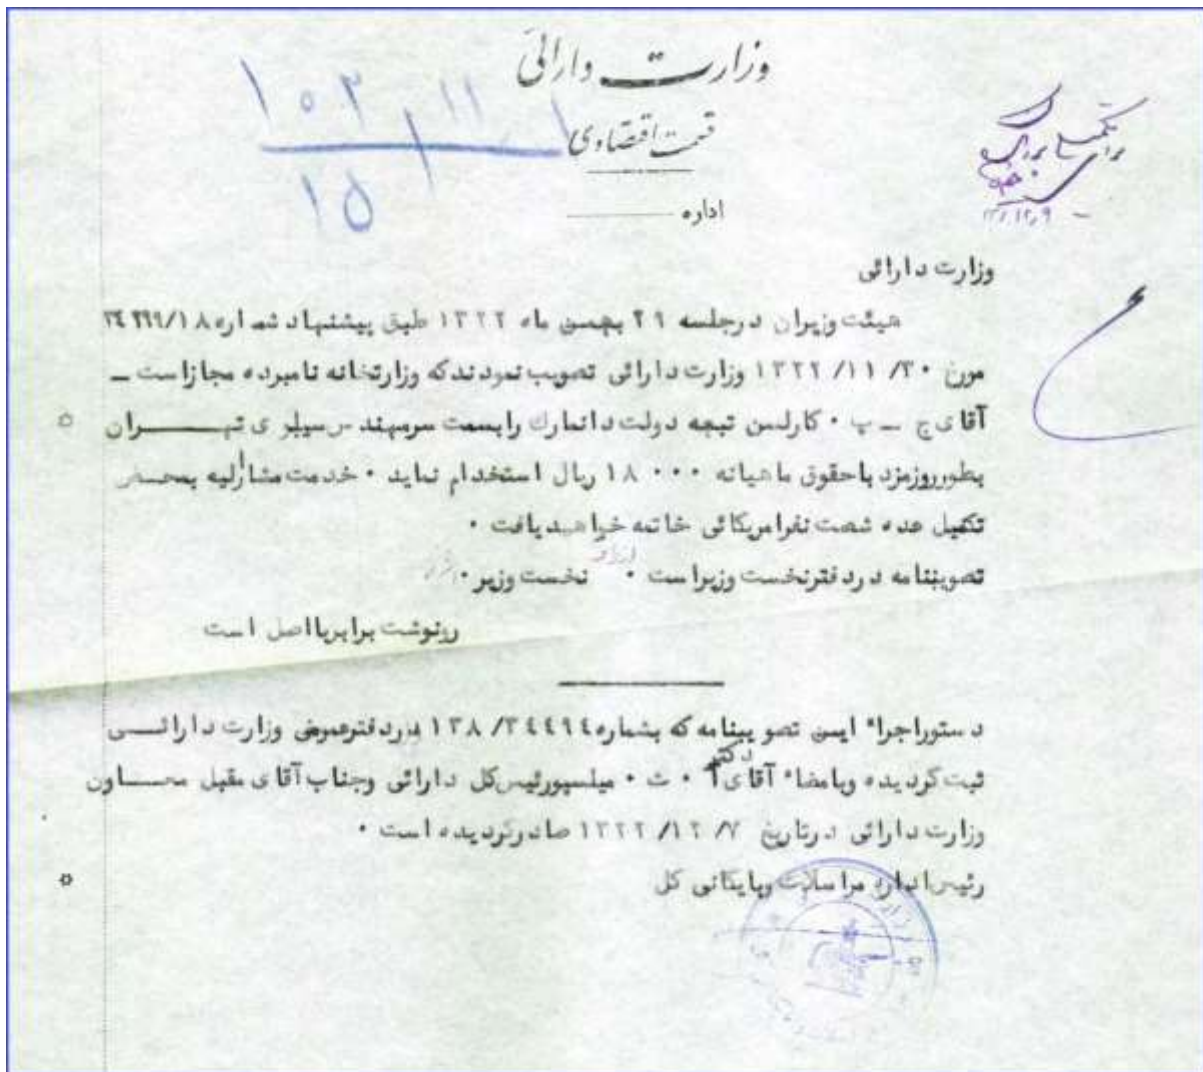 وزارت دارائی
قسمت اقتصادی
اداره
۱۰۳ ۱۱
۱۵
برای تکمیل
۱۲٫۹
وزارت دارائی
هیئت وزیران درجلسه ۲۹ بهمن ماه ۱۳۲۲ طبق پیشنهاد شماره
مورخ ۳۰/ ۱۱/ ۱۳۲۲ وزارت دارائی تصویب نمودندکه وزارتخانه نامبرده مجازاست ـ
آقای ج ـ پ ۰ کارلسن تبعه دولت دانمارک رابسمت سرمهندس سیلوی تهـــران
بطورروزمزد باحقوق ماهیانه ۱۸۰۰۰ ریال استخدام نماید ۰ خدمت مشارالیه بمحـــض
تکمیل عده شصت نفرامریکائی خاتمه خواهدیافت ۰
تصویبنامه دردفترنخست وزیراست ۰ نخست وزیر ۰
رونوشت برابربااصل است
دستوراجراء این تصویبنامه که بشماره ۳۴۴۹۴/ ۱۳۸ دردفترعمومی وزارت دارائـــی
ثبت گردیده وبامضاء آقای دکتر آ ۰ ث ۰ میلسپورئیس کل دارائی وجناب آقای مقبل معـــاون
وزارت دارائی درتاریخ ۷/ ۱۲/ ۱۳۲۲ صادرگردیده است ۰
رئیس اداره مراسلات وبایگانی کل